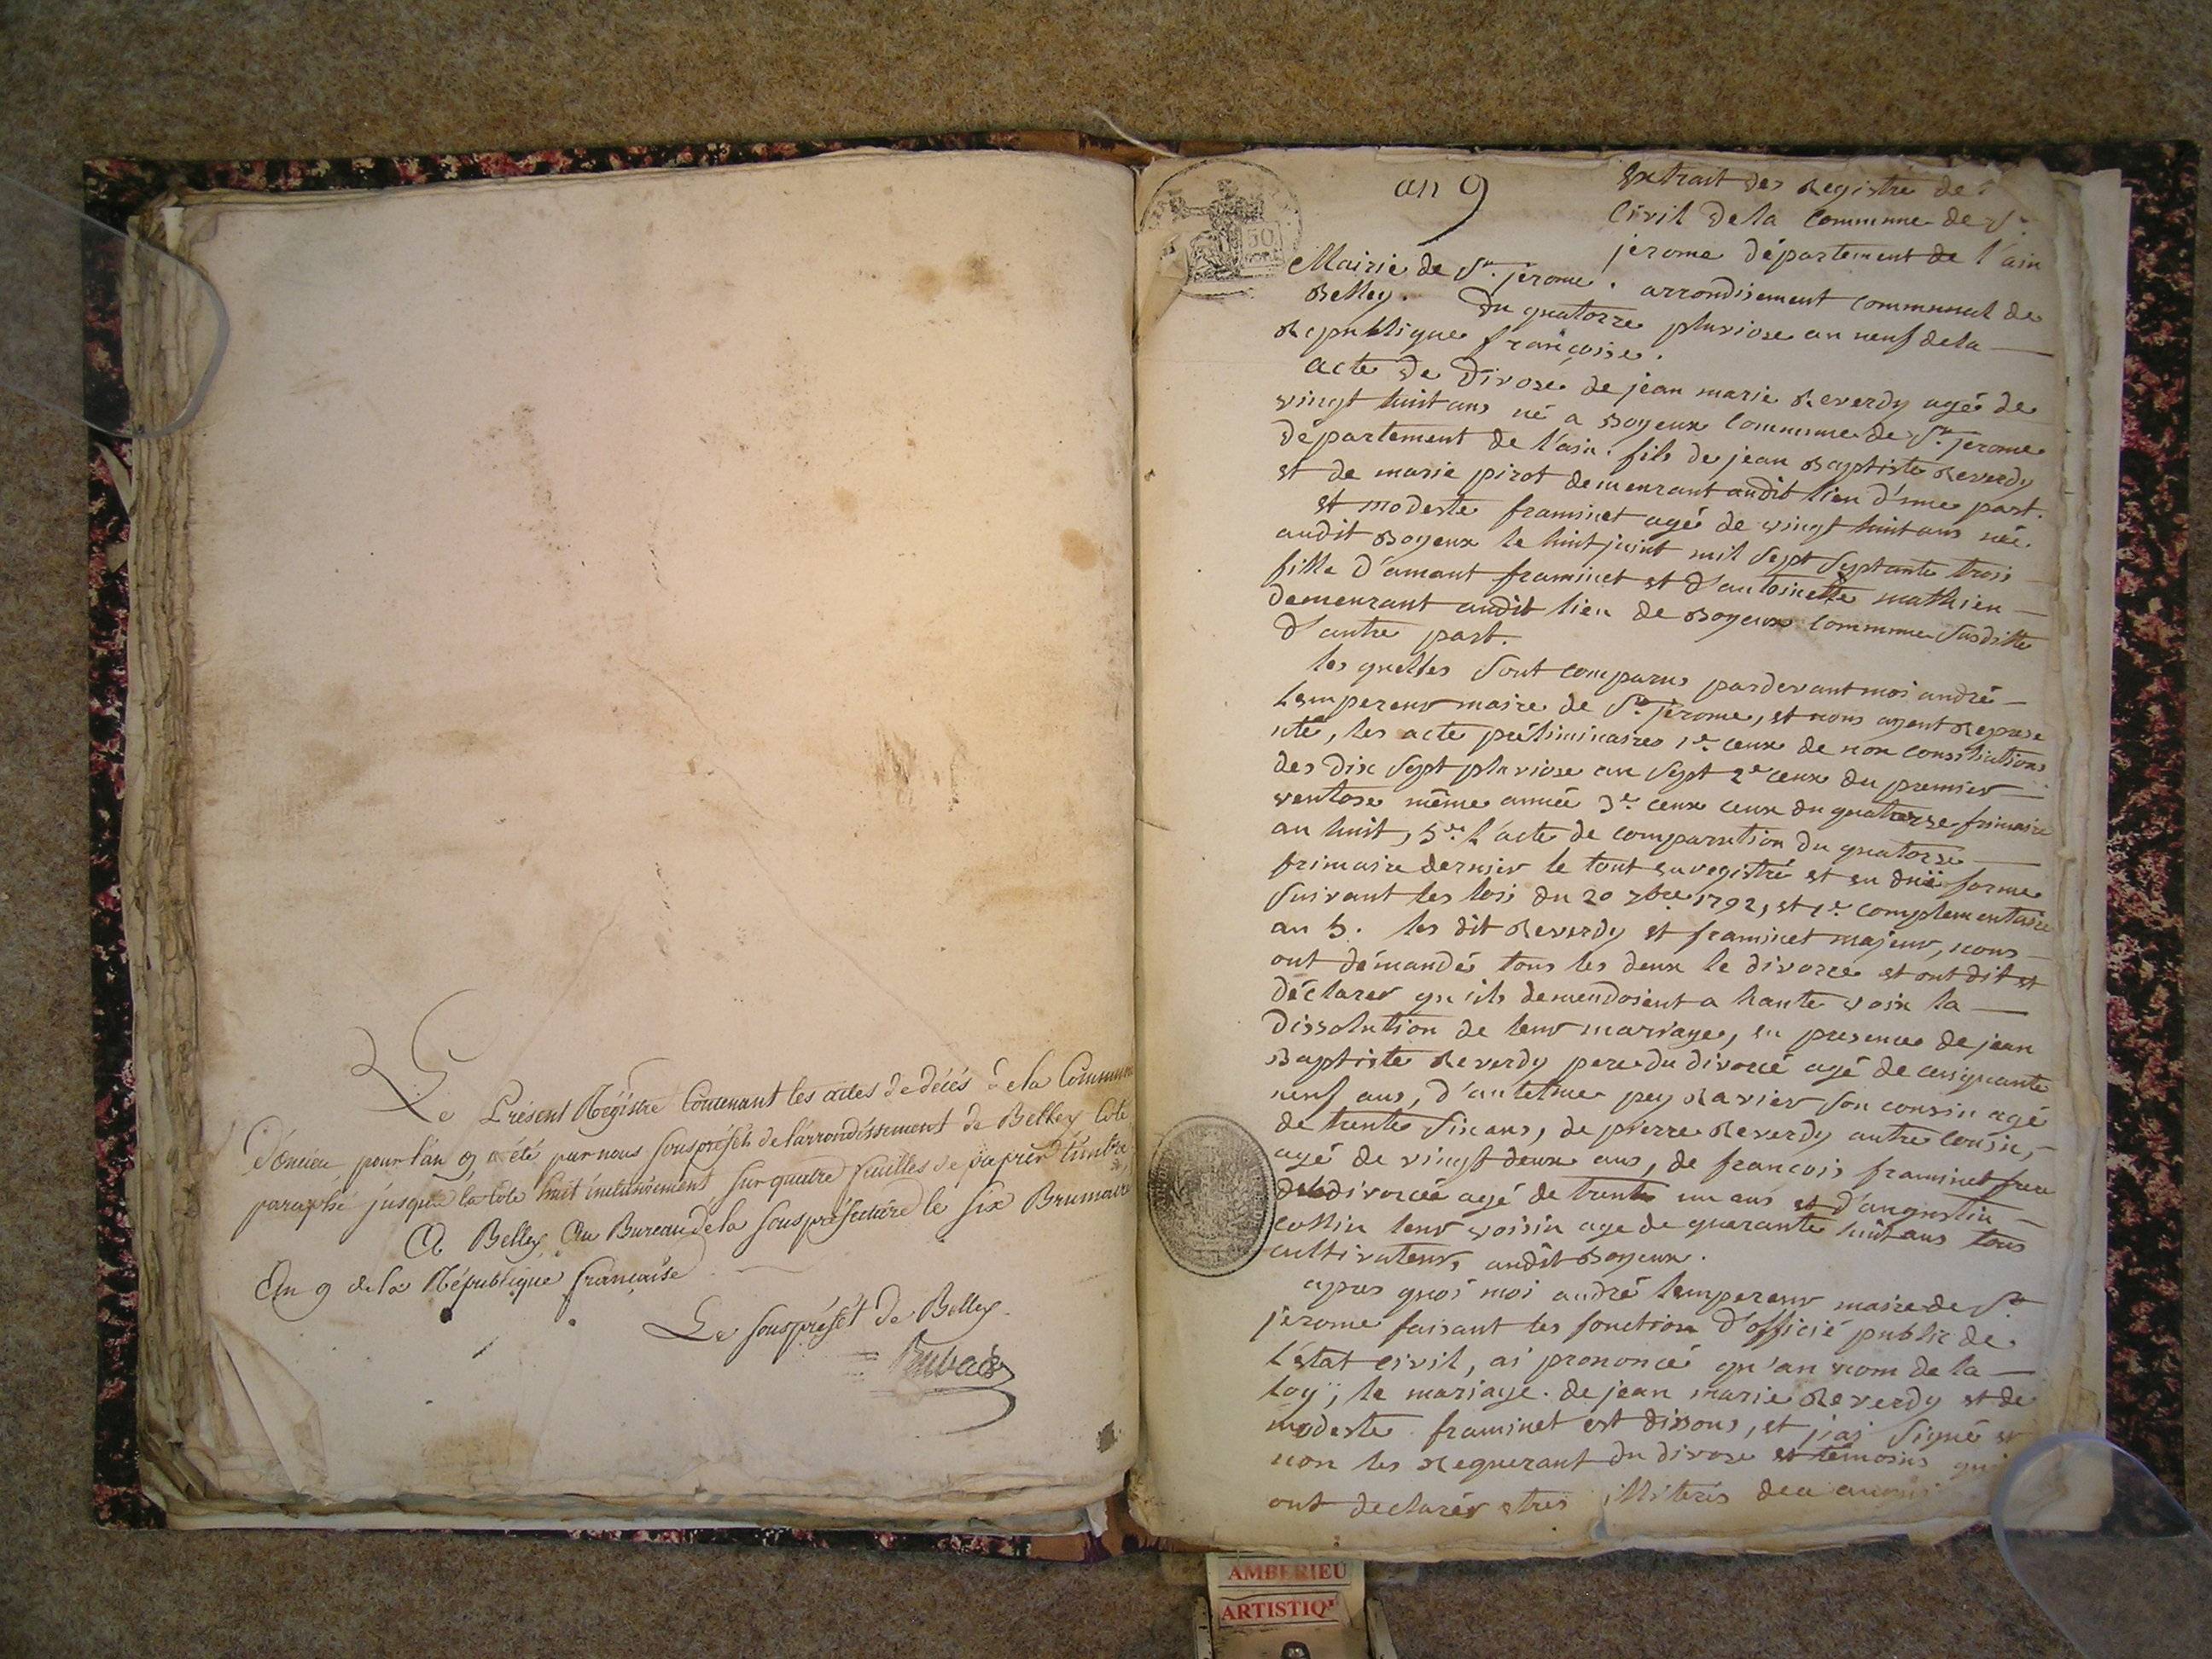 Le Présent Régistre Contenant les actes de décés de la Commune
d'oncieu pour l'an 9, a été par nous sousprését de l'arrondissement de Belley Coté
paraphé jusqua la Cote huit inclusivement sur quatre feuilles de papier timbré
A Belley Au Bureau de la sousprésecture le six Brumaire
An 9 de la République française
Le sousprését de Belley
an 9
50
Extrait des Registre de
Civil de la Commune de St.
jerome département de l'ain
Mairie de St. jerome. arrondisement communal de
Belley. Du quatorze pluviose an neuf dela
Republique françoise.
acte de Divose de jean marie Reverdy agé de
vingt huit ans né a Boyeux Commune de St. jerome
département de l'ain. fils de jean Baptiste Reverdy
et de marie pirot demeurant audit lieu d'une part.
et modeste framinet agé de vingt huit ans née
audit Boyeux le huit juint mil sept septante trois
fille d'amant framinet et d'antoinette mathieu
demeurant audit lieu de Boyeux Commune susditte
d'autre part.
les quelles sont comparus pardevant moi andré
Lempereur maire de St. jerome, et nous ayent Represe
nté, les acte préliminaires 1e. ceux de non consiliations
des dix sept pluviose an sept 2e ceux du premier
ventose même année 3e. ceux ceux du quatorze frimaire
an huit, 5e. l'acte de comparution du quatorze
frimaire dernier le tout enregistré et en düe forme
suivant les lois du 20 7bre 1792, et 1e. complementaire
an 5. les dit Reverdy et framinet majeur, nous
ont démandés tous les deux le divorce et ont dit et
déclarer qu'ils demendoient a haute voix la
Dissolution de leur mariage, en presence de jean
Baptiste Reverdy pere du divorcé agé de cinquante
neuf ans, d'antelme pey Ravier son cousin agé
de trente six ans, de pierre Reverdy autre Cousin,
agé de vingt deux ans, de francois framinet frere
dela divorcée agé de trente un ans et d'augustin
collin leur voisin age de quarante huit ans tous
cultivateurs audit Boyeux.
apres quoi moi andré lempereur maire de St
jerome faisant les fonction d'officié public de
l'état civil, ai prononcé qu'au nom de la
loy, le mariage. de jean marie Reverdy et de
modeste framinet est dissous, et j'ai signé et
non les Requerant du divose et témoins qui
ont declarés etres illiterés
AMBERIEU
ARTISTIQ